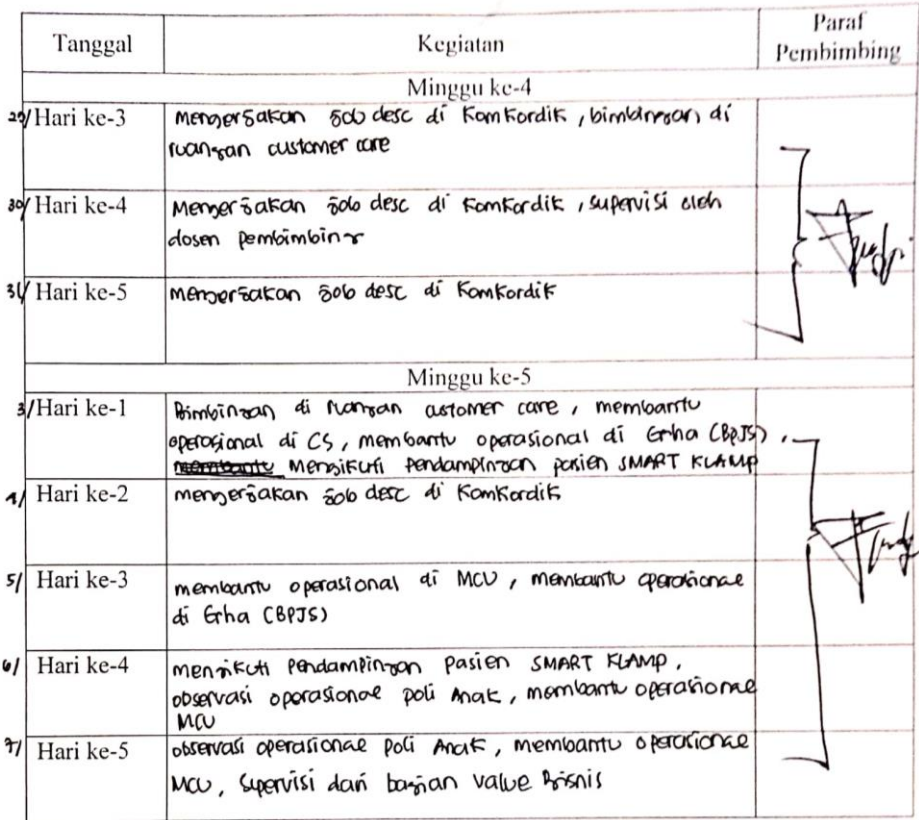 Tanggal
Kegiatan
Paraf
Pembimbing
Minggu ke-4
29/ Hari ke-3
mengerjakan job desc di KomKordik, bimbingan di
ruangan customer care
30/ Hari ke-4
Mengerjakan job desc di KomKordik, supervisi oleh
dosen pembimbing
31/ Hari ke-5
mengerjakan job desc di KomKordik
Minggu ke-5
3/ Hari ke-1
Bimbingan di ruangan customer care, membantu
operasional di CS, membantu operasional di Erha (BPJS),
membantu Mengikuti Pendampingan pasien SMART KLAMP
4/ Hari ke-2
mengerjakan job desc di KomKordik
5/ Hari ke-3
membantu operasional di MCU, membantu operasional
di Erha (BPJS)
6/ Hari ke-4
mengikuti Pendampingan pasien SMART KLAMP,
observasi operasional poli Anak, membantu operasional
MCU
7/ Hari ke-5
observasi operasional Poli Anak, membantu operasional
MCU, Supervisi dari bagian value Bisnis